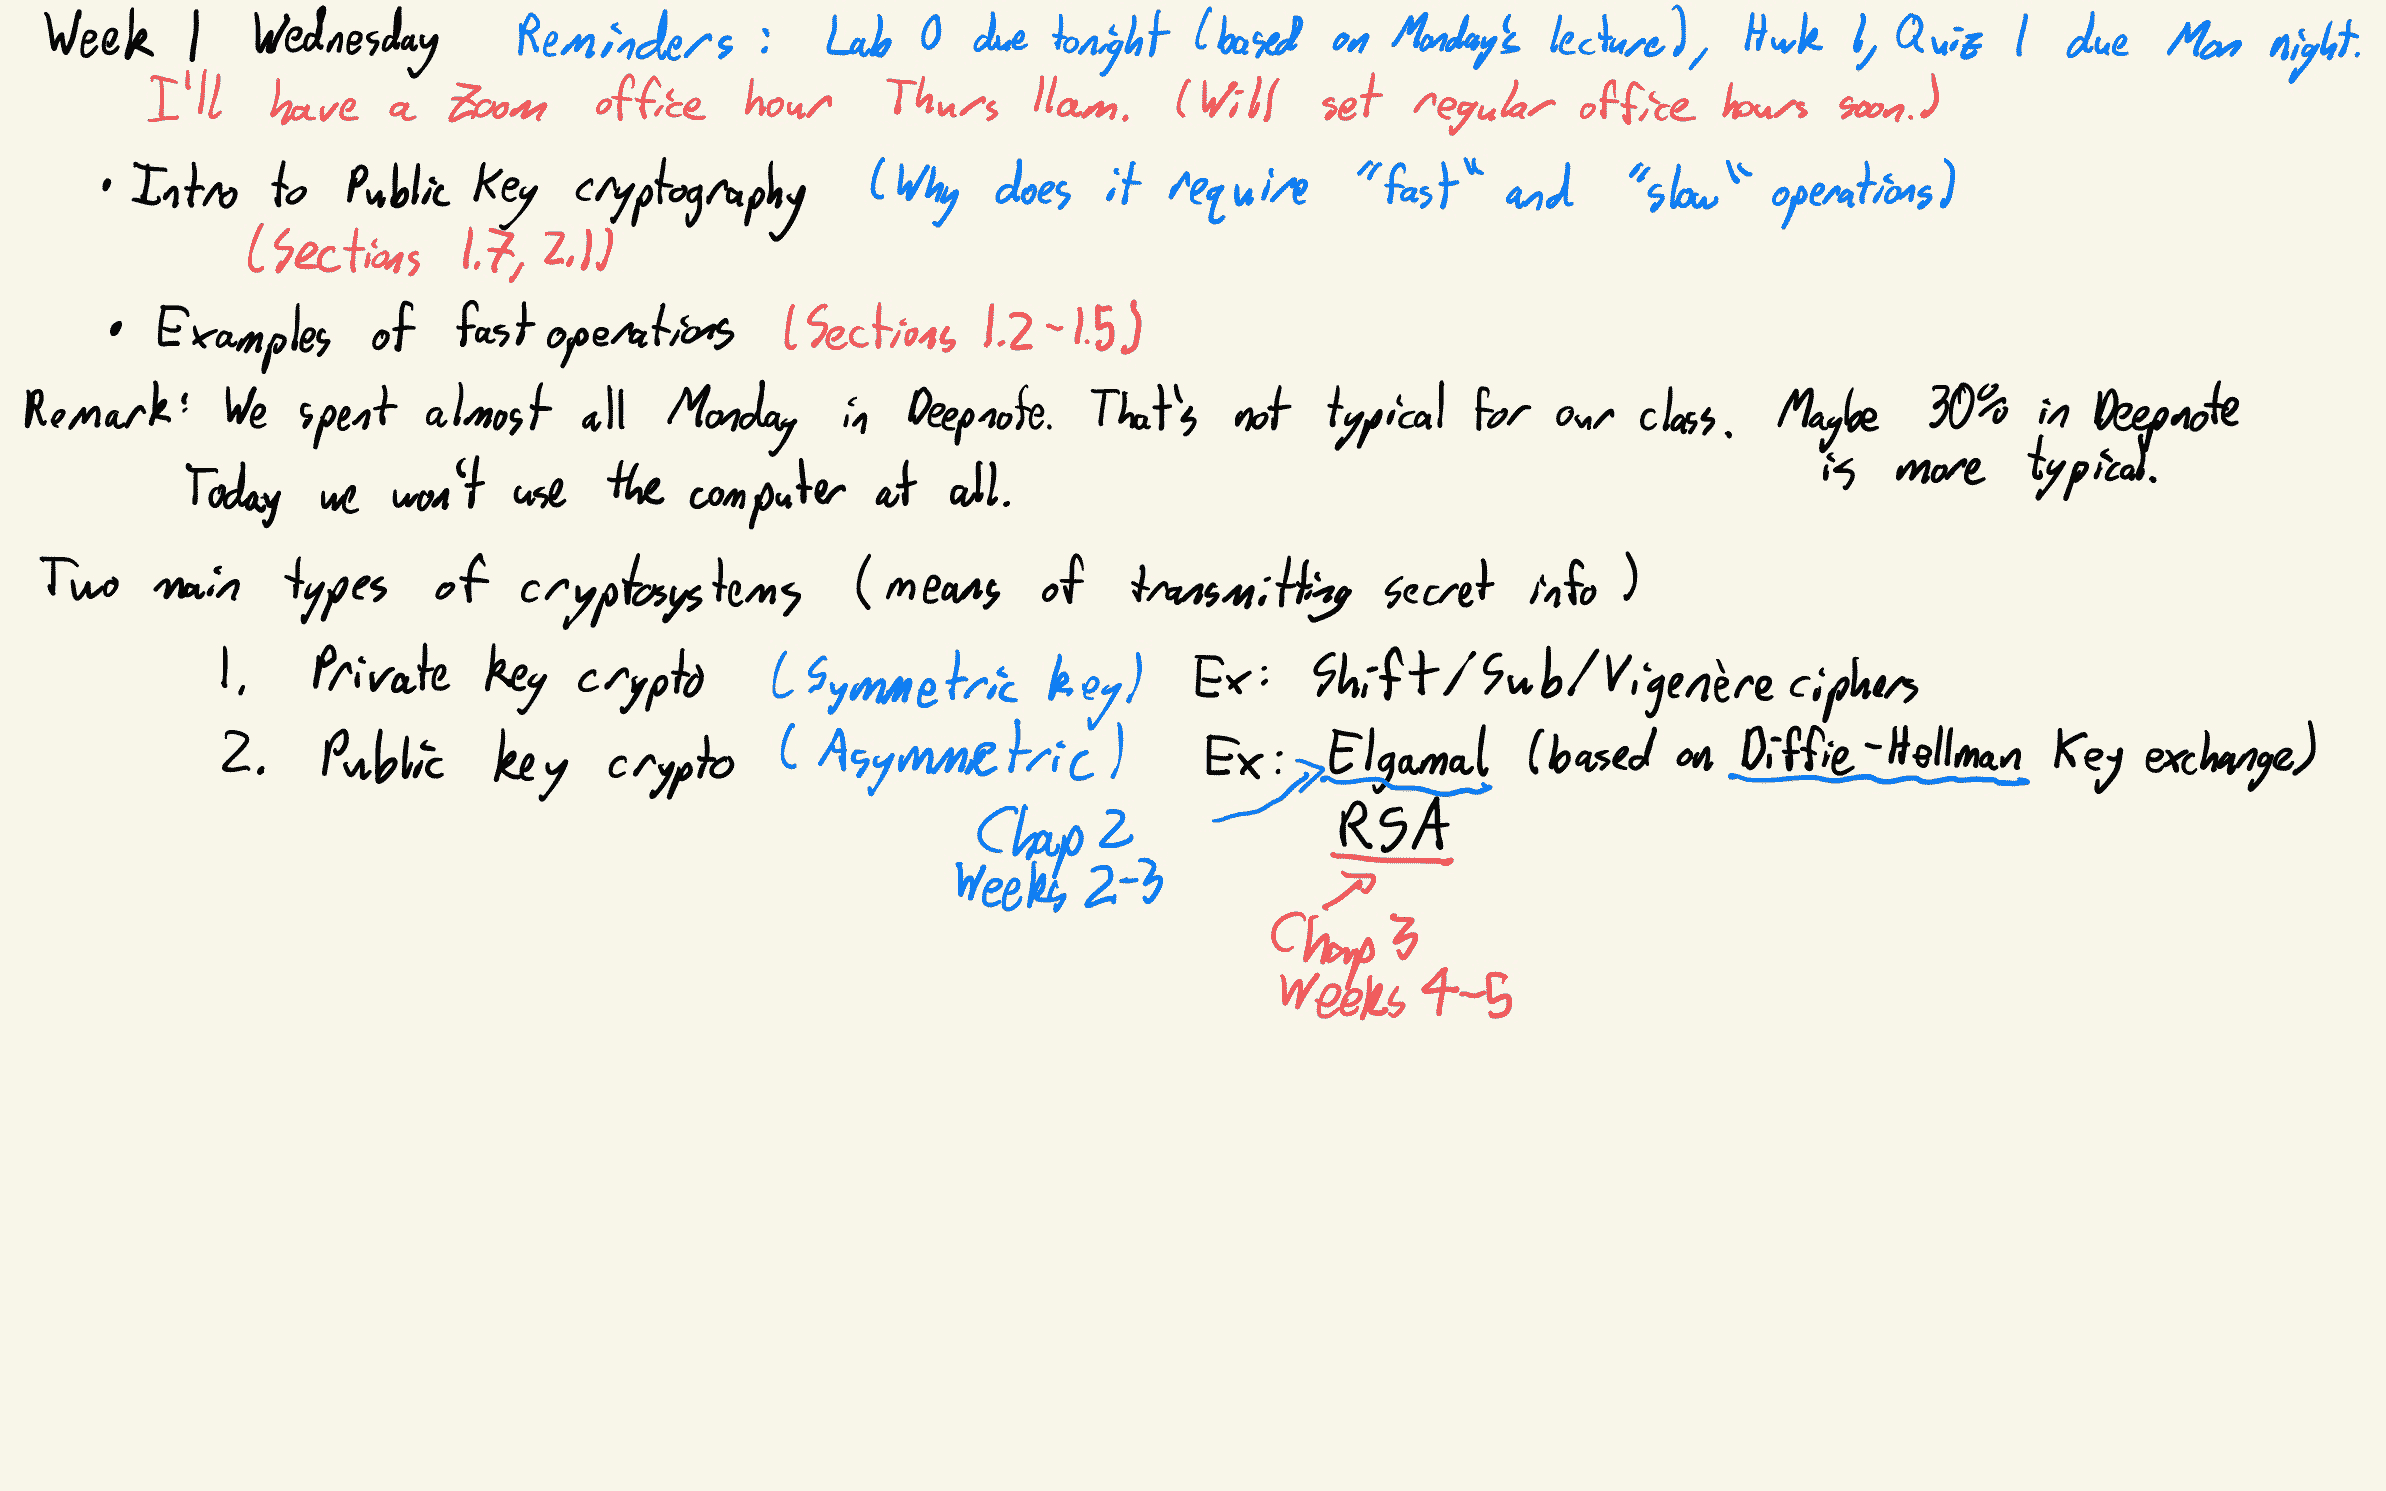 Week 1 Wednesday Reminders: Lab 0 due tonight (based on Monday's lecture), Hwk 1, Quiz 1 due Mon night.
I'll have a Zoom office hour Thurs 11am. (Will set regular office hours soon.)
• Intro to Public Key cryptography (Why does it require "fast" and "slow" operations)
(Sections 1.7, 2.1)
• Examples of fast operations (Sections 1.2-1.5)
Remark: We spent almost all Monday in Deepnote. That's not typical for our class. Maybe 30% in Deepnote
is more typical.
Today we won't use the computer at all.
Two main types of cryptosystems (means of transmitting secret info)
1. Private key crypto (Symmetric key) Ex: Shift/Sub/Vigenère ciphers
2. Public key crypto (Asymmetric) Ex: Elgamal (based on Diffie-Hellman Key exchange)
RSA
Chap 2
Weeks 2-3
Chap 3
Weeks 4-5